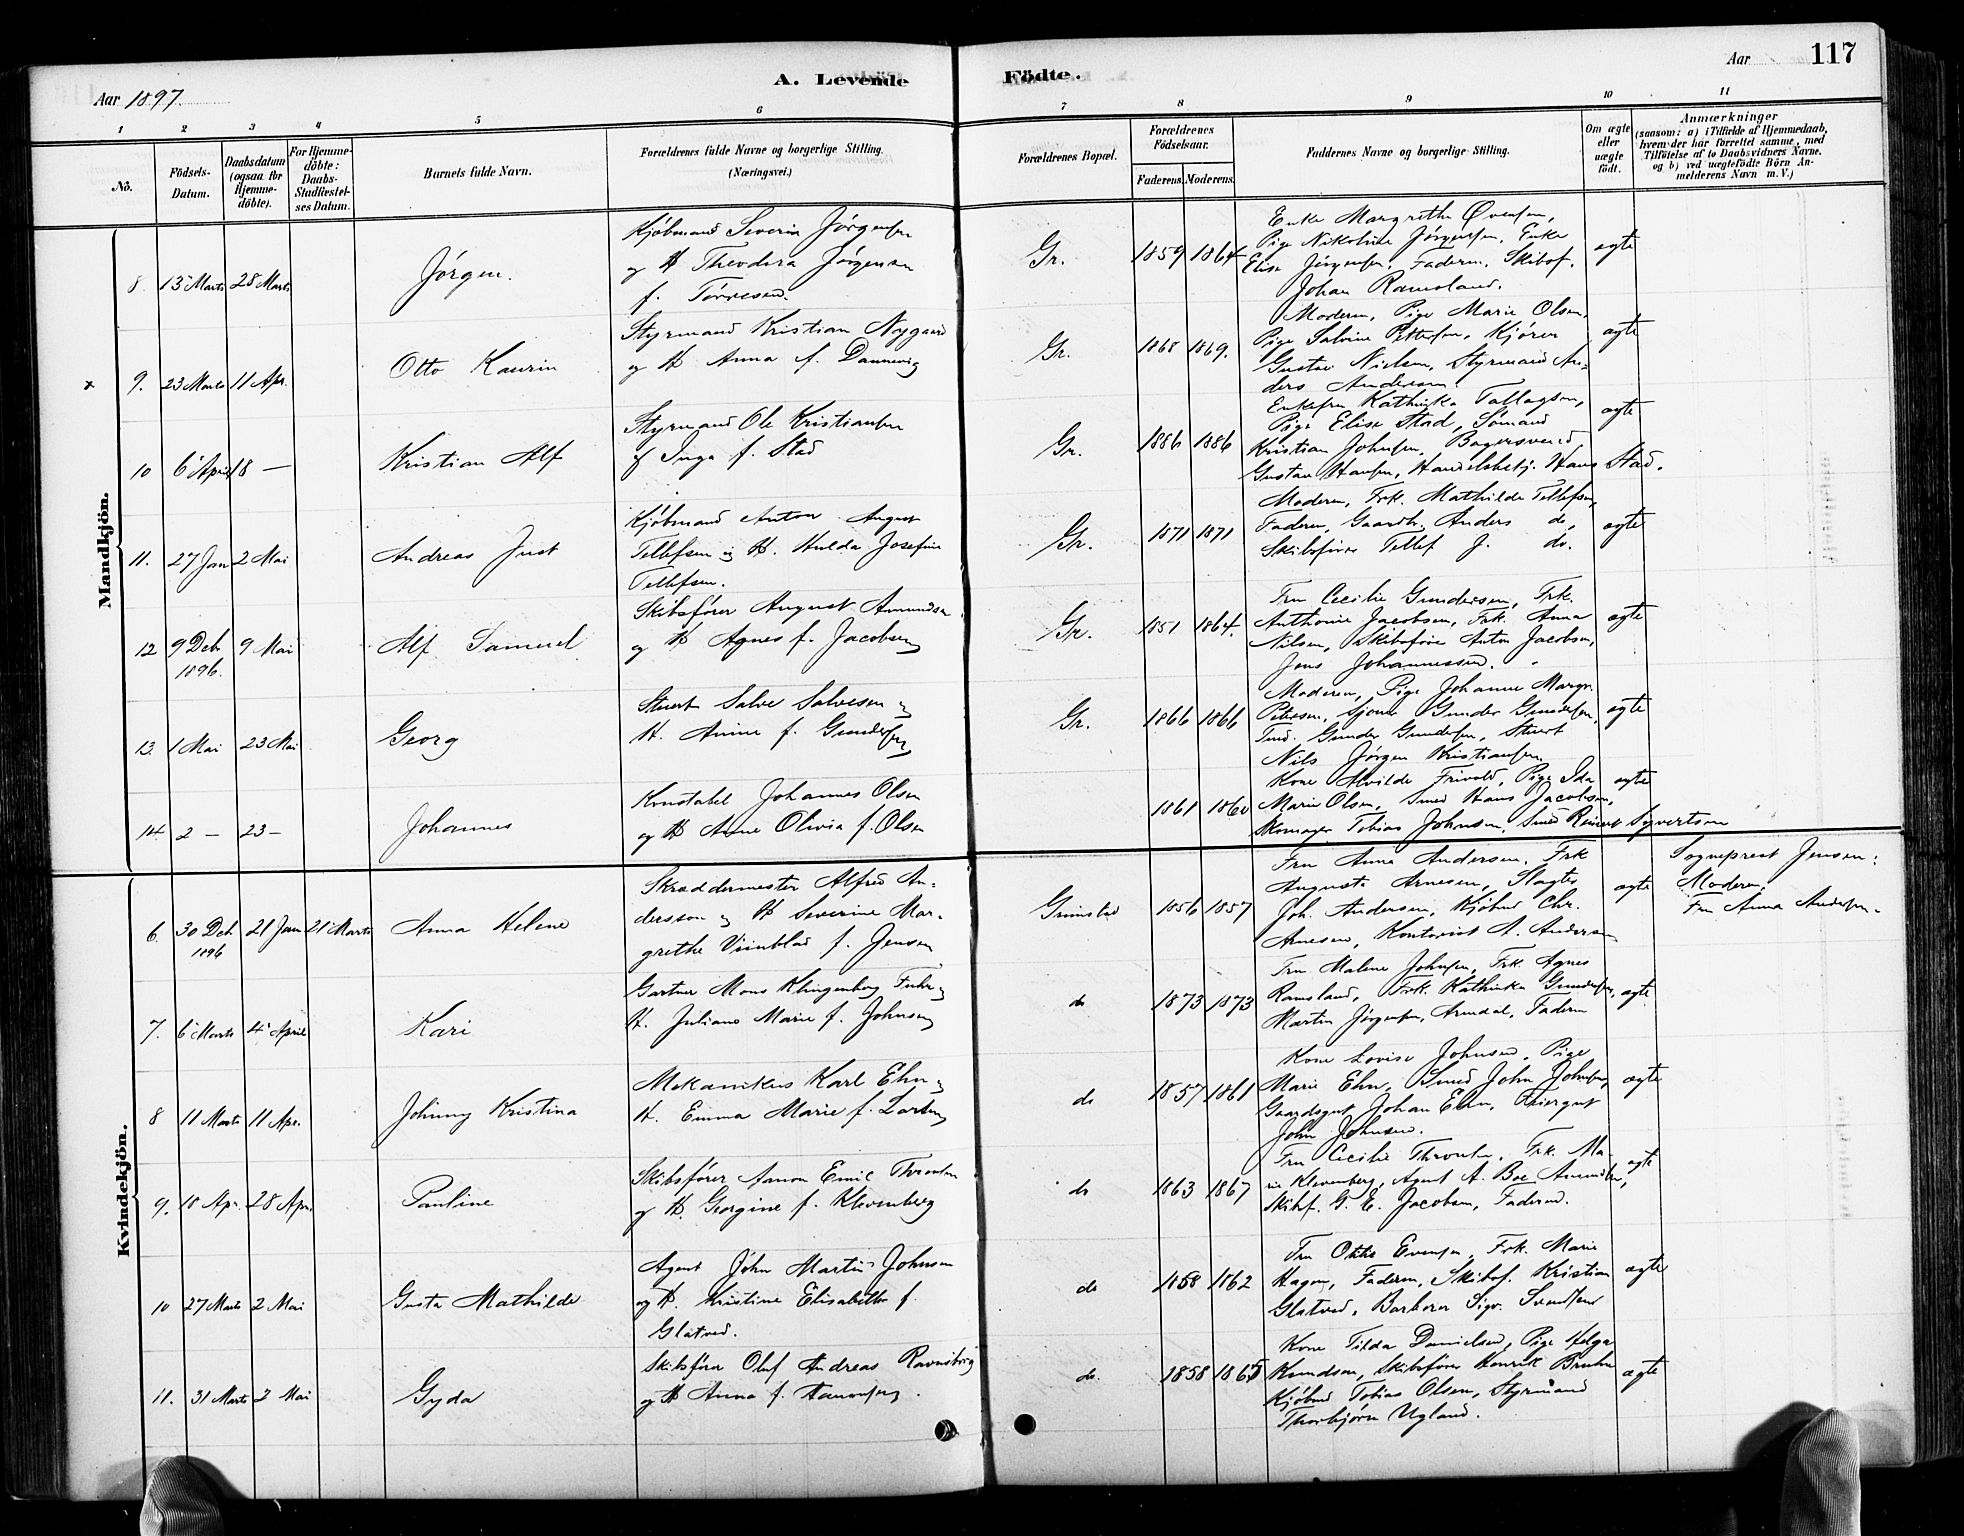 A. Levende
Födte.
Aar
117
Aar 1897.
1
2
3
4
5
6
7
8
9
10
11
Nö.
Födsels-
Datum.
Daabsdatum
(ogsaa for
Hjemme-
döbte).
For Hjemme-
döbte:
Daabs-
Stadfæstel-
ses Datum.
Barnets fulde Navn.
Forældrenes fulde Navne og borgerlige Stilling.
(Næringsvei.)
Forældrenes Bopæl.
Forældrenes
Födselsaar.
Faderens.
Moderens.
Faddernes Navne og borgerlige Stilling.
Om ægte
eller
uægte
födt.
Anmærkninger
(saasom: a) i Tilfælde af Hjemmedaab,
hvem der har forrettet samme, med
Tilföielse af to Daabsvidners Navne.
og b) ved uægtefödte Börn An-
melderens Navn m. V.)
Mandkjön.
8. 13 Marts 28 Marts
Jörgen.
Kjöbmand Severin Jörgensen
og H Theodora Jörgensen
f. Tørresen.
Gr.
1859 1864
Enke Margrethe Øvensen,
Pige Nikoline Jörgensen, Enke
Elise Jörgensen, Faderen, Skibsf.
Johan Ramsland.
ægte
x 9. 23 Marts 11 Apr.
Otto Kaurin
Styrmand Kristian Nygaard
og H Anna f. Dannevig
Gr.
1868 1869.
Moderen, Pige Marie Olsen,
Pige Salvine Pettersen, Kjörer
Gustav Nielsen, Styrmand An-
ders Andersen.
ægte
10 6 April 18 —
Kristian Alf
Styrmand Ole Kristiansen
og Inga f. Stad
Gr.
1886 1886
Enkefru Kathinka Tallagsen,
Pige Elise Stad, Sømand
Kristian Johnsen, Bagersvend
Gustav Hansen, Handelsbetj. Hans Stad.
ægte
11. 27 Jan 2 Mai
Andreas Just
Kjöbmand Anton August
Tellefsen og H. Hulda Josefine
Tellefsen.
Gr.
1871 1871
Moderen, Frk. Mathilde Tellefsen,
Faderen, Gaardb. Anders do,
Skibsfører Tellef J. do.
ægte
12 9 Deb 9 Mai
1896.
Alf Samuel
Skibsfører August Amundsen
og H Agnes f. Jacobsen
Gr.
1851 1864.
Fru Cecilie Gundersen, Frk.
Anthonie Jacobsen, Frk. Anna
Nilsen, Skibsfører Anton Jacobsen,
Jens Johannessen.
ægte
13. 1 Mai 23 Mai
Georg
Stuert Salve Salvesen og
H. Anine f. Gundersen
Gr.
1866 1866
Moderen, Pige Johanne Margr.
Petersen, Gunder Gundersen,
Gunder Gundersen, Stuert
Nils Jörgen Kristiansen.
ægte
14. 2 — 23 —
Johannes
Konstabel Johannes Olsen
og H Anne Olivia f. Olsen
1861 1860
Kone Alvilde Frivold, Pige Ida
Marie Olsen, Smed Hans Jacobsen,
Skomager Tobias Johnsen, Smed Reinert Syvertsen
ægte
Kvindekjön.
6. 30 Deb. 21 Jan 21 Marts
1896
Anna Helene
Skræddermester Alfred An-
dersson og H Severine Mar-
grethe Viinblad f. Jensen
Grimstad
1856 1857
Fru Anna Andersen, Frk
Augusta Arnesen, Slagter
Joh. Andersen, Kjöbmd Chr.
Arnesen, Kontorist A. Andersen
ægte
Sogneprest Jensen:
Moderen,
Fru Anna Andersen.
7. 6 Marts 4 April
Kari
Gartner Mons Klingenberg Fuhr og
H. Juliane Marie f. Johnsen
do
1873 1873
Fru Malene Johnsen, Frk. Agnes
Ramsland, Frk. Kathinka Gundersen,
Martin Jörgensen, Arendal, Faderen
ægte
8 11 Marts 11 Apr.
Johinny Kristina
Mekanikus Karl Ehn og
H. Emma Marie f. Larsen
do
1857 1861
Kone Lovise Johnsen, Pige
Marie Ehn, Smed John Johnsen,
Gaardsgut Johan Ehn,
John Johnsen.
ægte
9. 10 Apr. 28 Apr.
Pauline
Skibsfører Aanon Emil Throntsen
og H. Georgine f. Klevenberg
do
1863 1867
Fru Cecilie Throntsen, Frk. Ma-
rie Klevenberg, Agent A. Boe Amundsen,
Skibsf. G. E. Jacobsen, Faderen.
ægte
10 27 Marts 2 Mai
Gusta Mathilde
Agent John Martin Johnsen
og H. Kristine Elisabeth f.
Glatved.
do
1858 1862
Fru Othilie Evensen, Frk. Marie
Hagen, Faderen, Skibsf. Kristian
Glatved, Barberer Sigv. Svendsen
ægte
11. 31 Marts 2 Mai
Gyda
Skibsfører Oluf Andreas Ravnsborg
og H Anna f. Aanonsen.
do.
1858 1865
Kone Tilda Danielsen, Pige Helga
Knudsen, Skibsfører Henrik Bruhn
Kjöbmd Tobias Olsen, Styrmand
Thorbjørn Ugland.
ægte